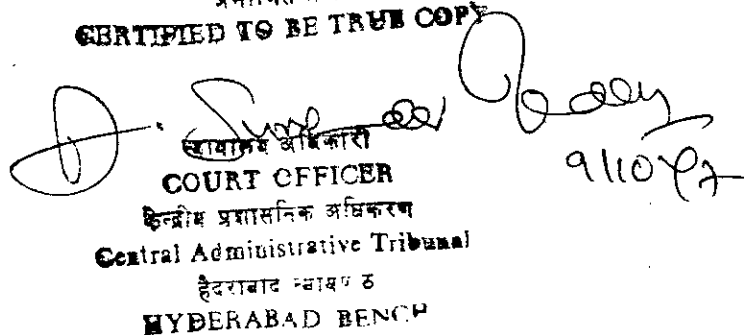 CERTIFIED TO BE TRUE COPY
D. Surender Reddy
न्यायालय अधिकारी
COURT OFFICER
9/10/97
केन्द्रीय प्रशासनिक अधिकरण
Central Administrative Tribunal
हैदराबाद
HYDERABAD BENCH